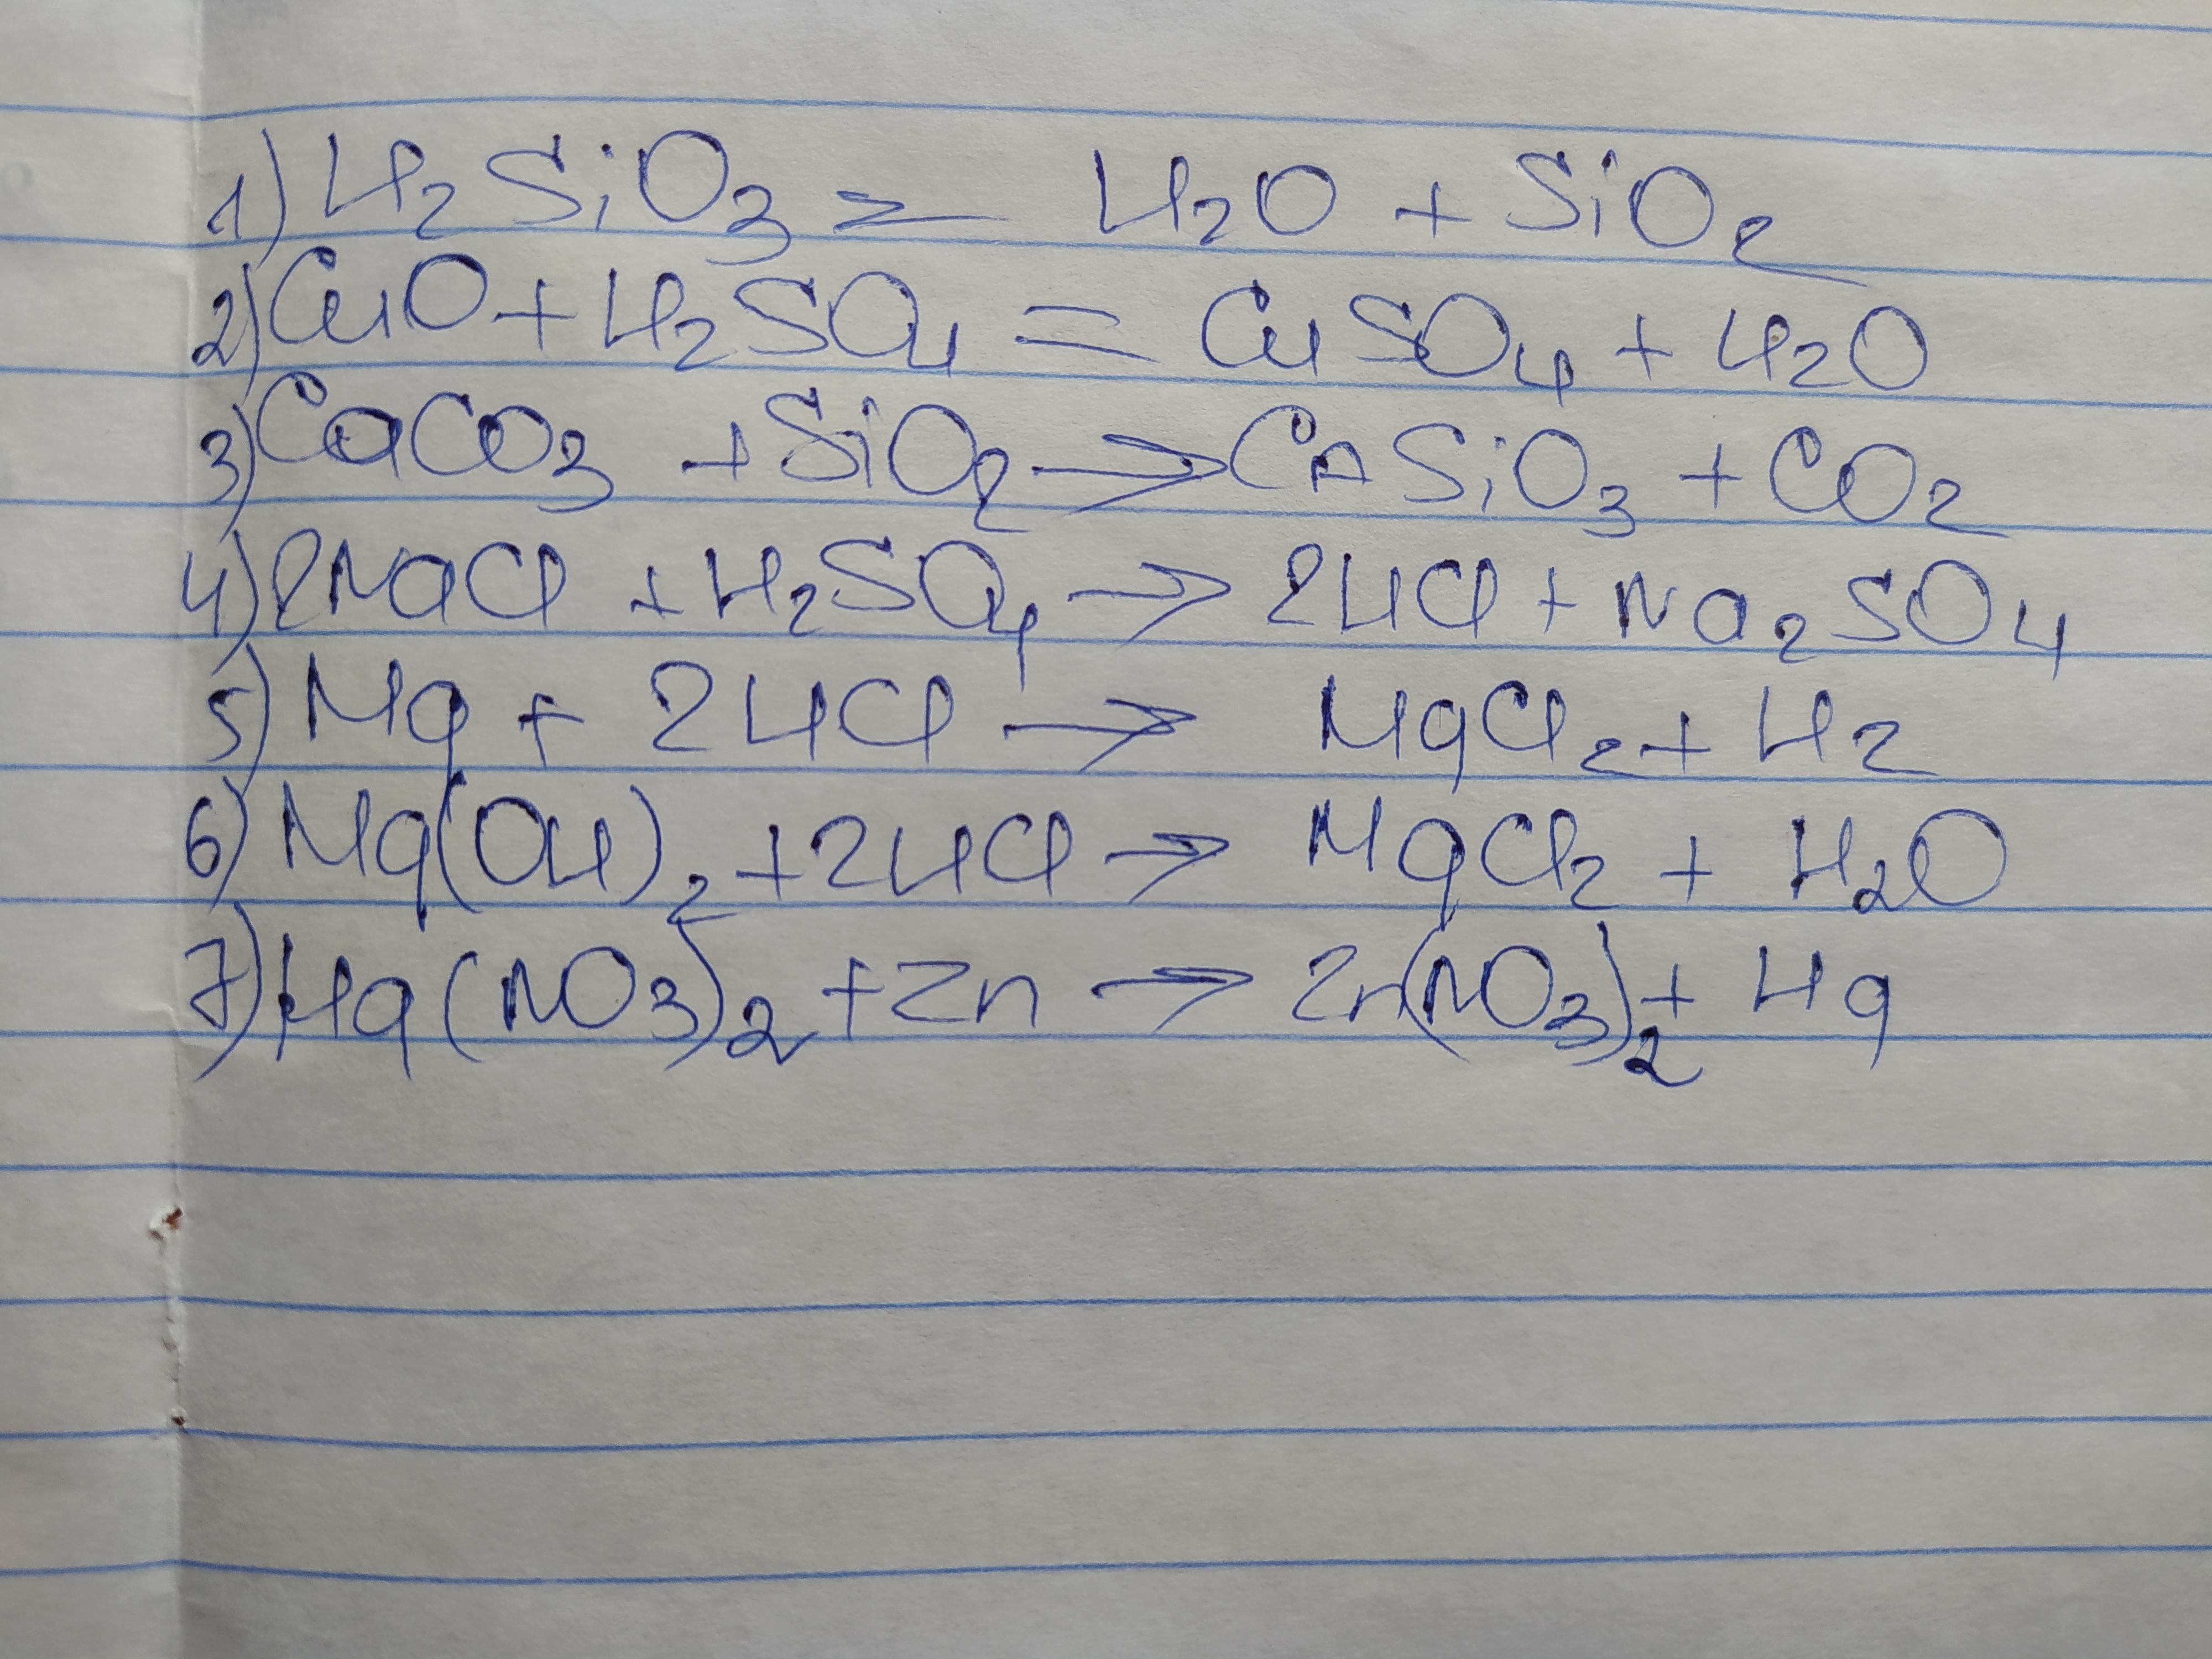 1) H₂SiO₃ = H₂O + SiO₂
2) CuO + H₂SO₄ = CuSO₄ + H₂O
3) CaCO₃ + SiO₂ → CaSiO₃ + CO₂
4) 2NaCl + H₂SO₄ → 2HCl + Na₂SO₄
5) Mg + 2HCl → MgCl₂ + H₂
6) Mg(OH)₂ + 2HCl → MgCl₂ + H₂O
7) Hg(NO₃)₂ + Zn → Zn(NO₃)₂ + Hg